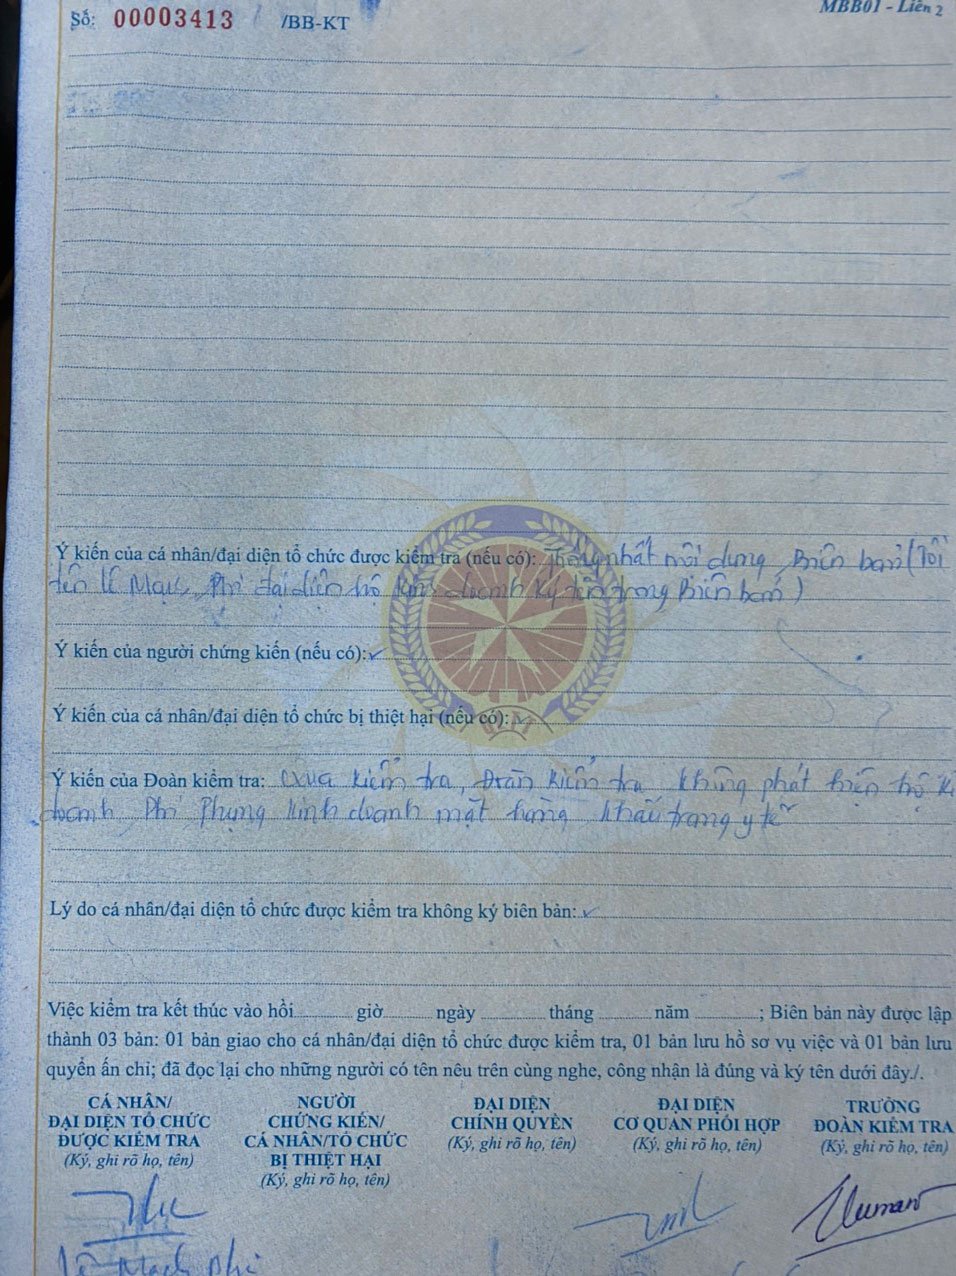 Số: 00003413 /BB-KT
MBB01 - Liên 2
Ý kiến của cá nhân/đại diện tổ chức được kiểm tra (nếu có): Thống nhất nội dung Biên bản (Tôi
tên lê Mạch Phi đại diện hộ kinh doanh ký tên trong Biên bản)
Ý kiến của người chứng kiến (nếu có):
Ý kiến của cá nhân/đại diện tổ chức bị thiệt hại (nếu có):
Ý kiến của Đoàn kiểm tra: Qua kiểm tra, Đoàn kiểm tra không phát hiện hộ ki
doanh Phi Phụng kinh doanh mặt hàng khẩu trang y tế
Lý do cá nhân/đại diện tổ chức được kiểm tra không ký biên bản:
Việc kiểm tra kết thúc vào hồi giờ ngày tháng năm ; Biên bản này được lập
thành 03 bản: 01 bản giao cho cá nhân/đại diện tổ chức được kiểm tra, 01 bản lưu hồ sơ vụ việc và 01 bản lưu
quyển ấn chỉ; đã đọc lại cho những người có tên nêu trên cùng nghe, công nhận là đúng và ký tên dưới đây./.
CÁ NHÂN/
ĐẠI DIỆN TỔ CHỨC
ĐƯỢC KIỂM TRA
(Ký, ghi rõ họ, tên)
NGƯỜI
CHỨNG KIẾN/
CÁ NHÂN/TỔ CHỨC
BỊ THIỆT HẠI
(Ký, ghi rõ họ, tên)
ĐẠI DIỆN
CHÍNH QUYỀN
(Ký, ghi rõ họ, tên)
ĐẠI DIỆN
CƠ QUAN PHỐI HỢP
(Ký, ghi rõ họ, tên)
TRƯỞNG
ĐOÀN KIỂM TRA
(Ký, ghi rõ họ, tên)
Lê Mạch Phi